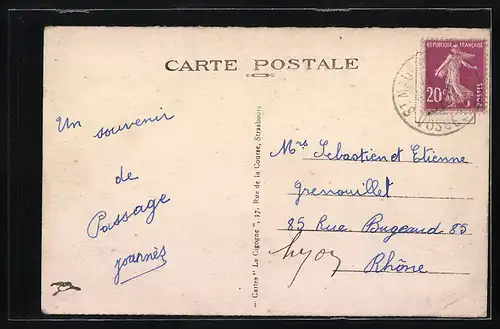 CARTE POSTALE
RÉPUBLIQUE FRANÇAISE
20c
POSTES
VOSGES
Un souvenir
de
Passage
Joannès
— Cartes "La Cigogne", 17, Rue de la Course, Strasbourg
Mrs Sebastien et Etienne
Grenouillet
85 Rue Bugeaud 85
Lyon
Rhône